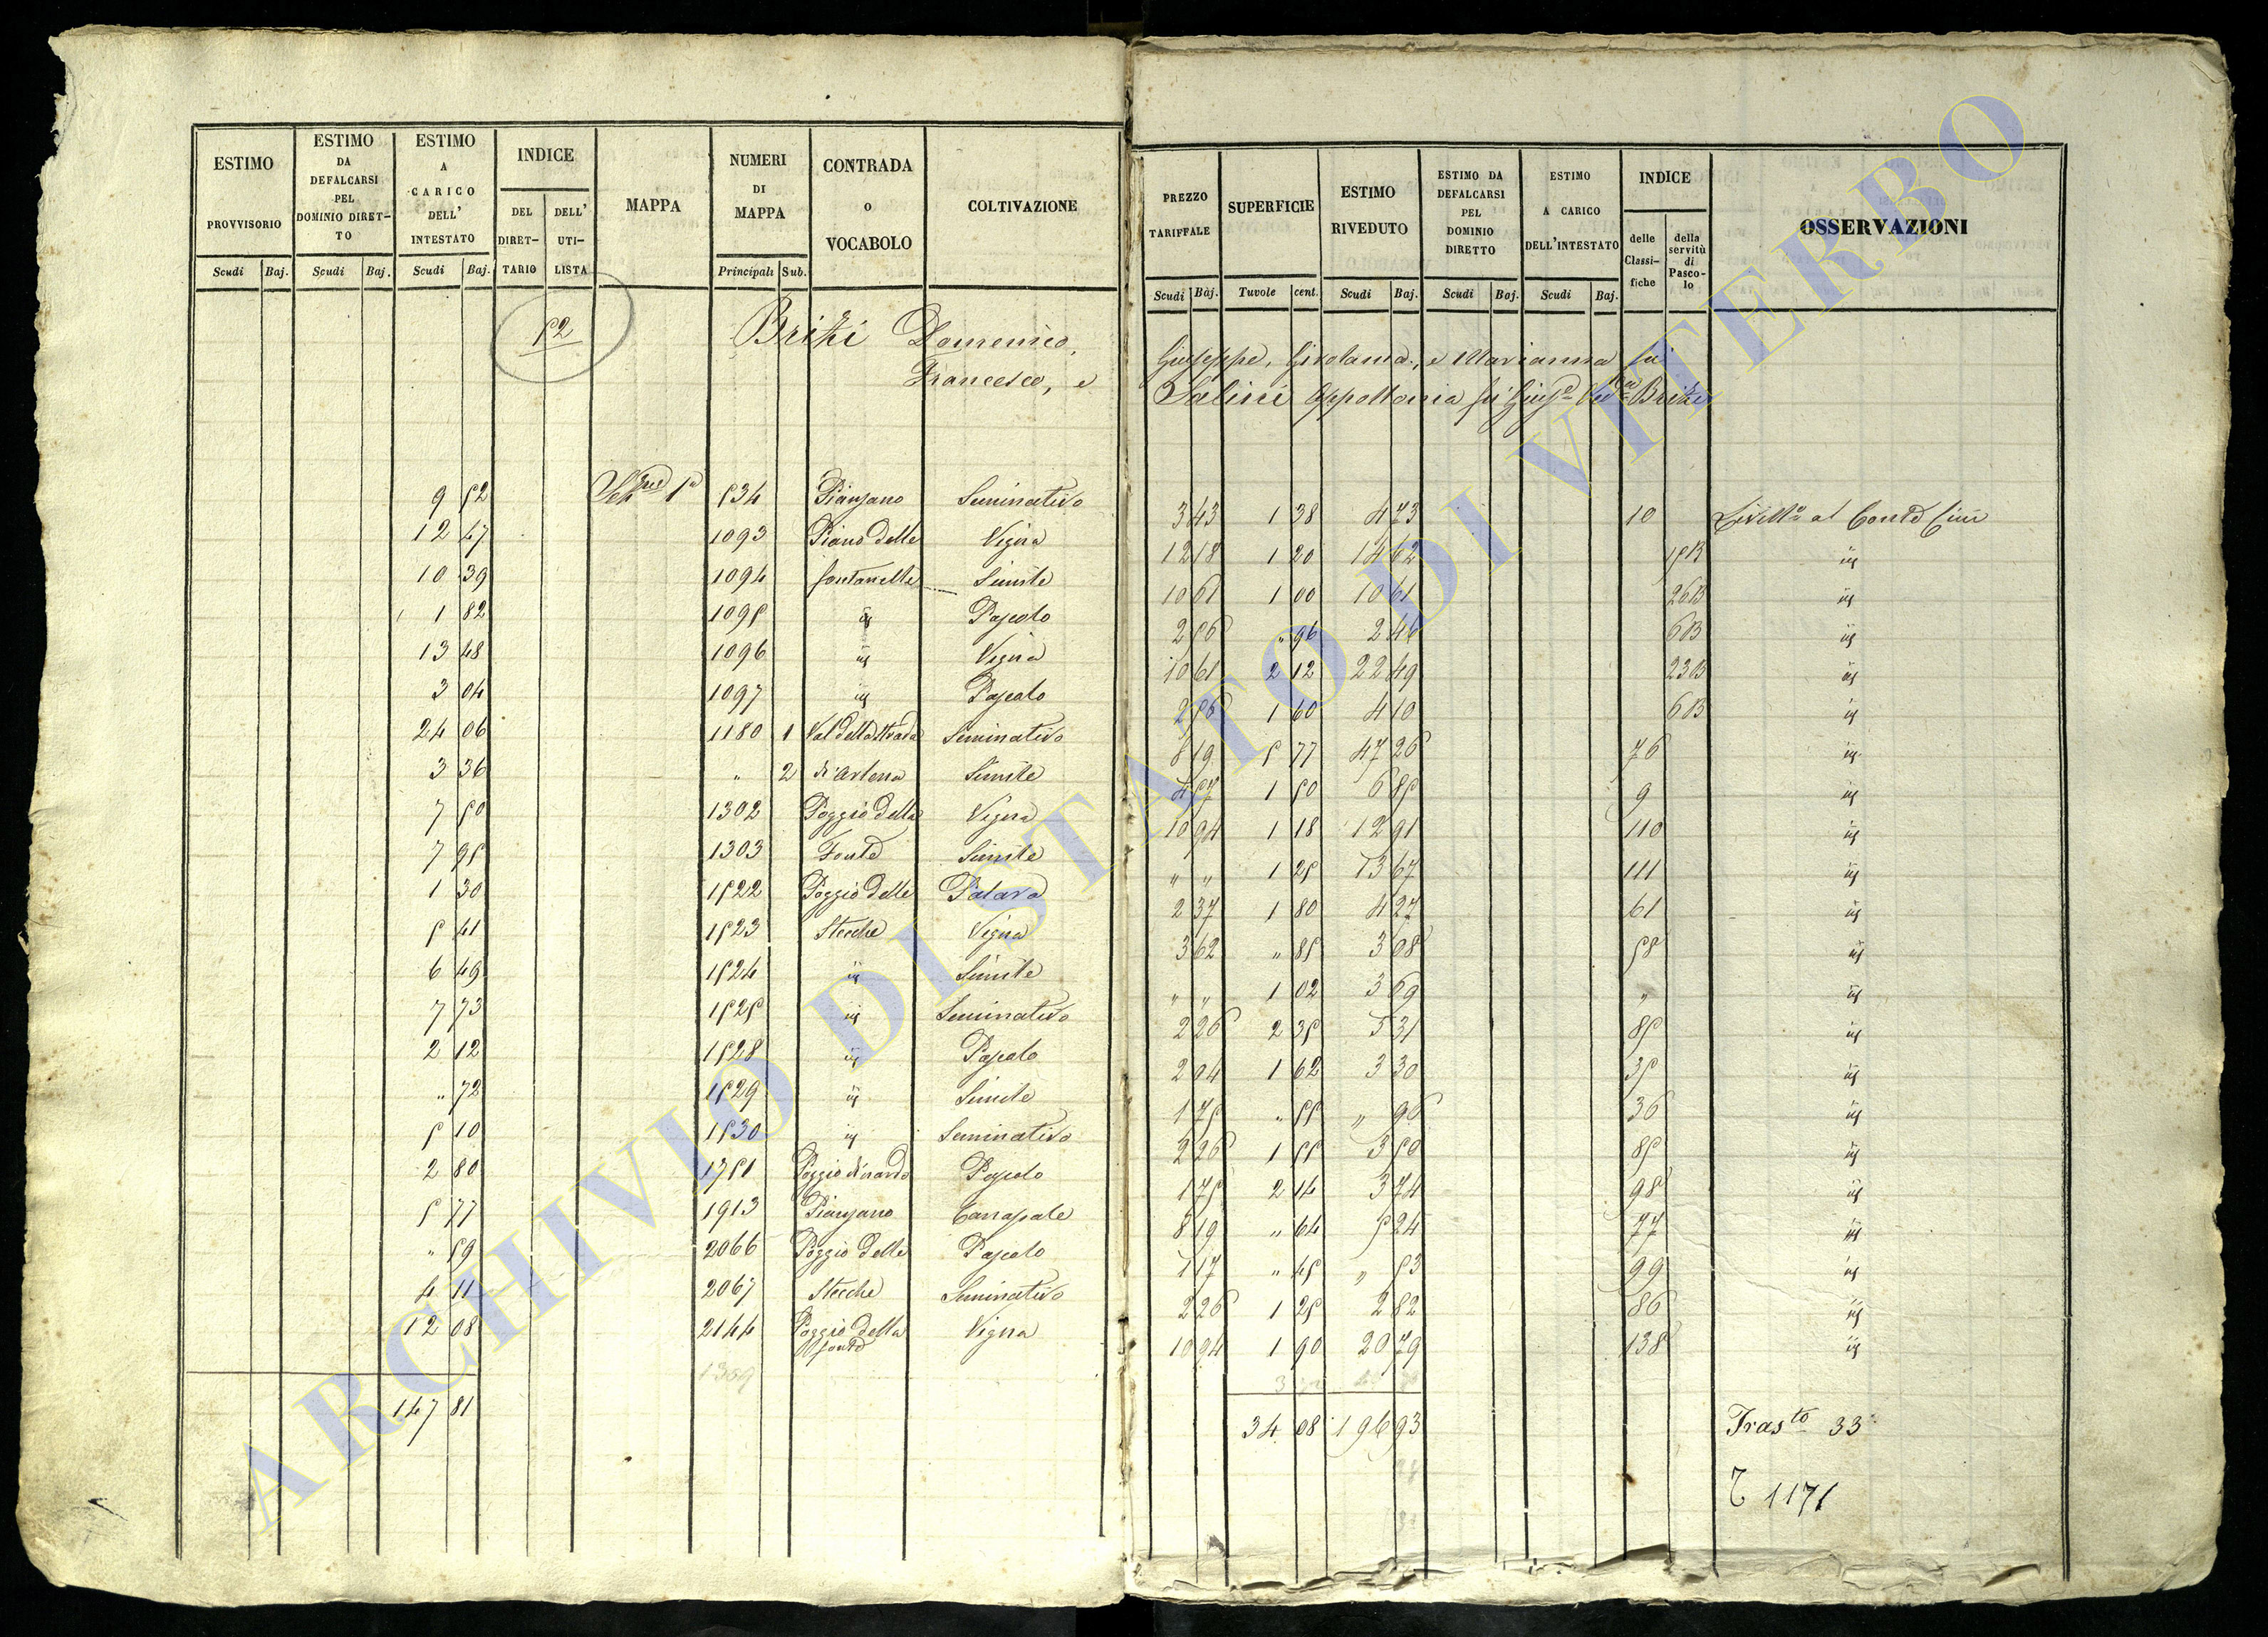 ESTIMO PROVVISORIO | ESTIMO DA DEFALCARSI PEL DOMINIO DIRET-TO | ESTIMO A CARICO DELL' INTESTATO | INDICE | MAPPA | NUMERI DI MAPPA | CONTRADA O VOCABOLO | COLTIVAZIONE | PREZZO TARIFFALE | SUPERFICIE | ESTIMO RIVEDUTO | ESTIMO DA DEFALCARSI PEL DOMINIO DIRETTO | ESTIMO A CARICO DELL'INTESTATO | INDICE | OSSERVAZIONI
DEL DIRET-TARIO | DELL' UTI-LISTA | delle Classi-fiche | della servitù di Pasco-lo
Scudi | Baj. | Scudi | Baj. | Scudi | Baj. | Principali | Sub. | Scudi | Baj. | Tavole | cent. | Scudi | Baj. | Scudi | Baj. | Scudi | Baj.
52 Brizi Domenico, Giuseppe, Girolama, e Marianna fu
Francesco, e Salini Appollonia fu Giuse Veda Brizi
9 52 | Seze 1a | 534 | Pianzano | Seminativo | 3 43 | 1 38 | 4 73 | 10 | Livello al
12 47 | 1093 | Piano delle | Vigna | 12 18 | 1 20 | 14 62 | 15B | id
10 39 | 1094 | fontanelle | Simile | 10 61 | 1 00 | 10 61 | 26B | id
1 82 | 1095 | id | Pascolo | 2 56 | " 96 | 2 46 | 6B | id
13 48 | 1096 | id | Vigna | 10 61 | 2 12 | 22 49 | 23B | id
3 04 | 1097 | id | Pascolo | 2 56 | 1 60 | 4 10 | 6B | id
24 06 | 1180 | 1 | Val della strada | Seminativo | 8 19 | 5 77 | 47 26 | 76 | id
3 36 | " | 2 | di Artena | Simile | 4 57 | 1 50 | 6 85 | 9 | id
7 50 | 1302 | Poggio della | Vigna | 10 94 | 1 18 | 12 91 | 110 | id
7 95 | 1303 | Fonte | Simile | " " | 1 25 | 13 67 | 111 | id
1 30 | 1522 | Poggio delle | 2 37 | 1 80 | 4 27 | 61 | id
5 41 | 1523 | Stecche | Vigna | 3 62 | " 85 | 3 08 | 58 | id
6 49 | 1524 | id | Simile | " " | 1 02 | 3 69 | " | id
7 73 | 1525 | id | Seminativo | 2 26 | 2 35 | 5 31 | 85 | id
2 12 | 1528 | id | Pascolo | 2 04 | 1 62 | 3 30 | 35 | id
" 72 | 1529 | id | Simile | 1 75 | " 55 | " 96 | 36 | id
5 10 | 1530 | id | Seminativo | 2 26 | 1 55 | 3 50 | 85 | id
2 80 | 1751 | Poggio di nardo | Pascolo | 1 75 | 2 14 | 3 74 | 98 | id
5 77 | 1913 | Pianzano | Canapale | 8 19 | " 64 | 5 24 | 77 | id
" 59 | 2066 | Poggio delle | Pascolo | 1 17 | " 45 | " 53 | 99 | id
4 11 | 2067 | Stecche | Seminativo | 2 26 | 1 25 | 2 82 | 86 | id
12 08 | 2144 | Poggio della fonte | Vigna | 10 94 | 1 90 | 20 79 | 138 | id
1309
147 81 | 34 08 | 196 93 | Trasto 33
T 1171
ARCHIVIO DI STATO DI VITERBO